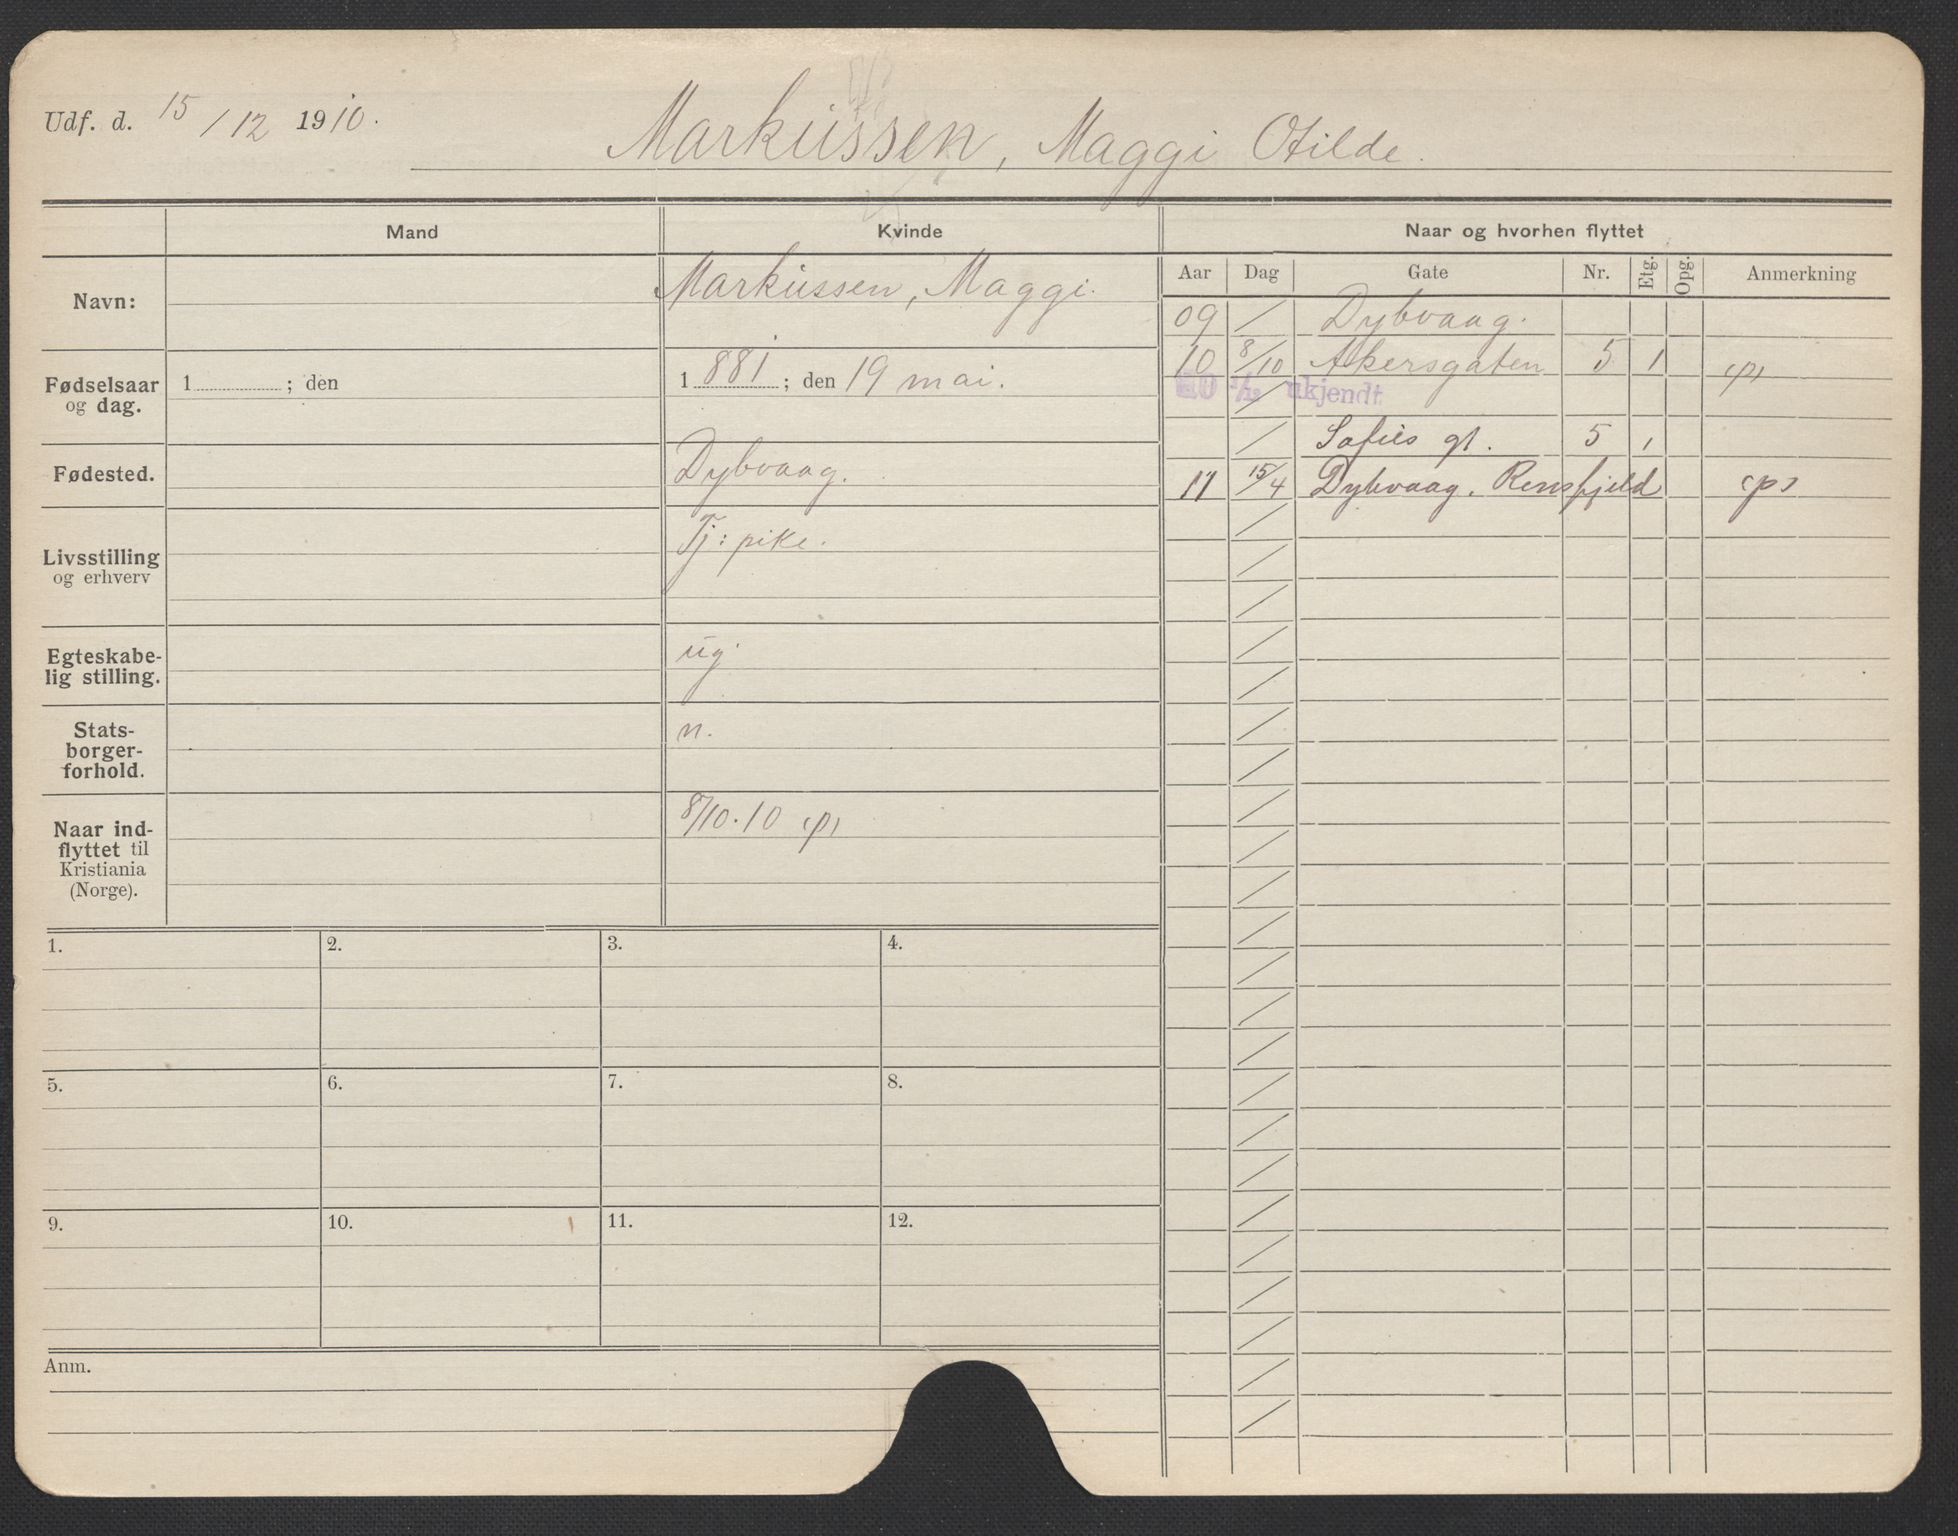 Udf. d. 15/12 1910.
Markussen, Maggi Otilde.
Mand Kvinde Naar og hvorhen flyttet
Aar Dag Gate Nr. Etg. Opg. Anmerkning
Navn: Markussen, Maggi.
Fødselsaar og dag. 1 ; den 1881 ; den 19 mai.
Fødested. Dybvaag.
Livsstilling og erhverv Tj: pike.
Egteskabe-
lig stilling. ug.
Stats-
borger-
forhold. n.
Naar ind-
flyttet til
Kristiania
(Norge). 8/10.10 (p)
09 / Dybvaag.
10 8/10 Akersgaten 5 1 (p)
10 1/12 ukjendt
/ Sofies gt. 5 1
11 15/4 Dybvaag. (p)
1. 2. 3. 4.
5. 6. 7. 8.
9. 10. 11. 12.
Anm.